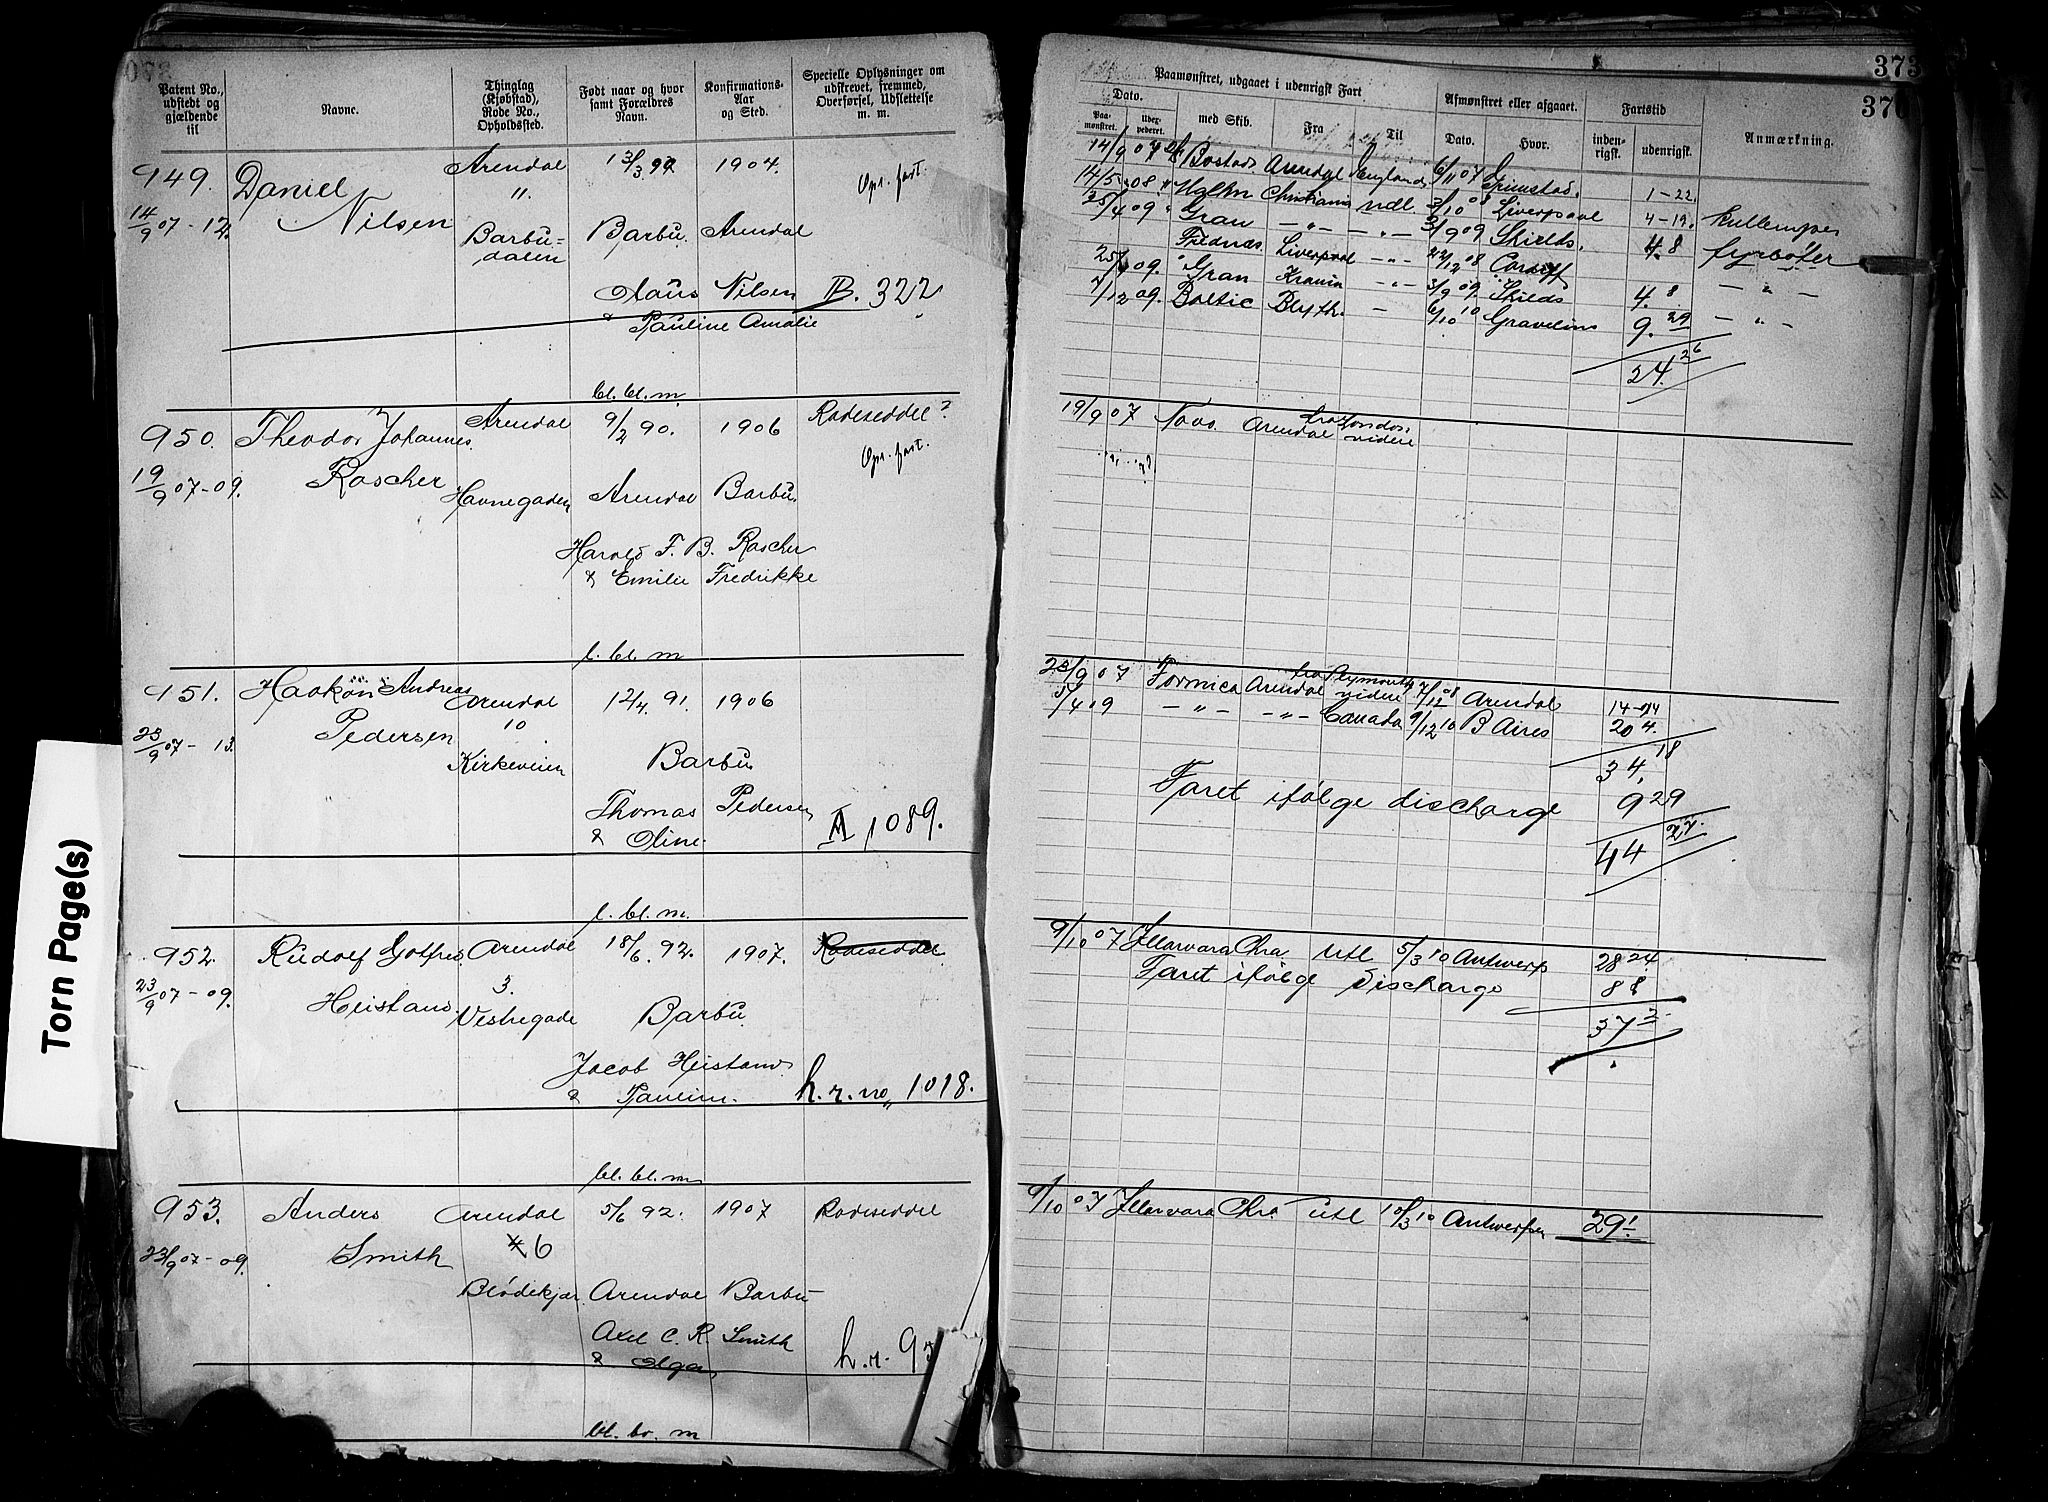 373
370
Patent No., udstedt og gjældende til
Navne.
Thinglag (Kjøbstad), Rode No., Opholdssted.
Født naar og hvor samt Forældres Navn.
Konfirmations-Aar og Sted.
Specielle Oplysninger om udstrevet, fremmed, Overførsel, Udslettelse m. m.
Paamønstret, udgaaet i udenrigsk Fart
Dato.
Paa-mønstret.
med Skib.
Fra
Til
Afmønstret eller afgaaet.
Dato.
Hvor.
Fartstid
inden-rigsk.
udenrigsk.
Anmærkning.
949. Daniel Nilsen
14/9 07 - 12.
Arendal
"
Barbu=dalen
1904.
Barbu. Arendal
Claus Nilsen
& Pauline Amalie
Opr. fart.
B. 322
bl. bl. m
14/9 07 Bostad Arendal England 6/11 07 Grimstad. 1-22.
14/5 08 Christiania udl. 3/10 08 Liverpool 4-19. kullemper
25/4 09 Gran - " - - " - 3/9 09 Shields. 4. 8 fyrbøter
Liverpool - " - 22/12 08 Cardiff
25/4 09. Gran - " - 3/9 09. Shields 4. 8 - " -
7/12 09. Baltic Blyth. - 6/10 10 Gravelins 9. 29 - " -
24. 26
950. Theodor Johannes Rascher
19/9 07-09.
Arendal
Havnegaden
9/2 90. 1906
Arendal Barbu.
Harald F. B. Rascher
& Emilie Fredrikke
Rodeseddel?
Opr. fart.
l. bl. m
19/9 07 Novo. Arendal fra London. videre
951. Haakon Andreas Pedersen
23/9 07 - 13.
Arendal
10
Kirkeveien
12/4. 91. 1906
Barbu
Thomas Pedersen
& Oline.
A 1089.
l. bl. m.
23/9 07 Formica Arendal fra Plymouth videre 7/12 08 Arendal 14-14
5/4 09 - " - - " - Canada 9/12 10 B Aires 20 4.
34, 18
Faret ifølge discharge 9 29
44 27.
952. Rudolf Gotfred Heistand.
23/9 07-09.
Arendal
3.
Vestregade
18/6. 92. 1907.
Barbu.
Jacob Heistand
& Pauline.
Rodeseddel
h. r. no „ 1018.
bl. bl. m
9/10 07 Illawara Chra Utl 5/3 10 Antwerp 28 24.
Faret ifølge Discharge 8 8
37 2
953. Anders Smith
23/9 07-09.
Arendal
6
Blødekjær
5/6 92. 1907
Arendal Barbu
Axel C. R. Smith
& Olga
Rodeseddel
h. r. 93
bl. br. m
9/10 07 Illawara Chra. utl 10/3 10 Antwerpen 29 1.
Torn Page(s)